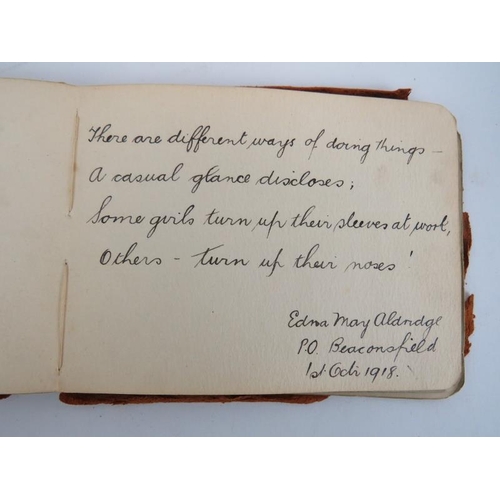 There are different ways of doing things –
A casual glance discloses;
Some girls turn up their sleeves at work,
Others – turn up their noses!
Edna May Aldridge
P.O. Beaconsfield
1st Octr 1918.